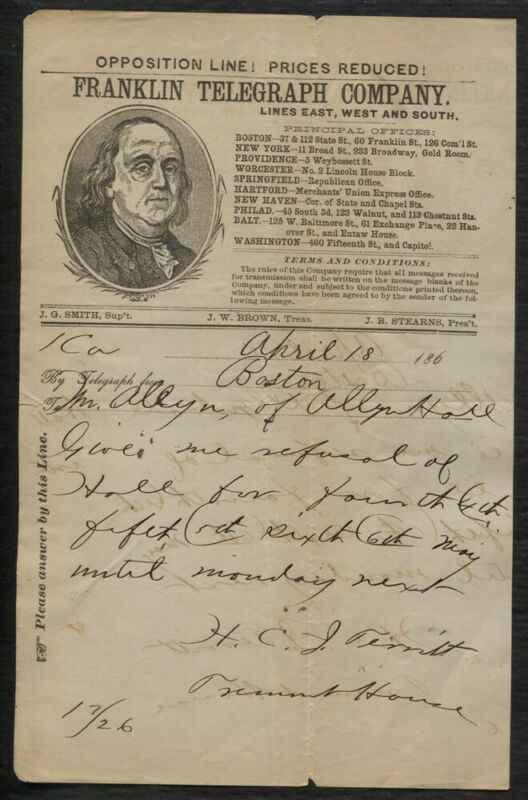 OPPOSITION LINE! PRICES REDUCED!
FRANKLIN TELEGRAPH COMPANY.
LINES EAST, WEST AND SOUTH.
PRINCIPAL OFFICES:
BOSTON—37 & 112 State St., 60 Franklin St., 126 Com'l St.
NEW YORK—11 Broad St., 233 Broadway, Gold Room.
PROVIDENCE—5 Weybossett St.
WORCESTER—No. 2 Lincoln House Block.
SPRINGFIELD—Republican Office.
HARTFORD—Merchants' Union Express Office.
NEW HAVEN—Cor. of State and Chapel Sts.
PHILAD.—45 South 3d, 123 Walnut, and 113 Chestnut Sts.
BALT.—125 W. Baltimore St., 61 Exchange Place, 22 Han-
over St., and Eutaw House.
WASHINGTON—460 Fifteenth St., and Capitol.
TERMS AND CONDITIONS:
The rules of this Company require that all messages received
for transmission shall be written on the message blanks of the
Company, under and subject to the conditions printed thereon,
which conditions have been agreed to by the sender of the fol-
lowing message.
J. G. SMITH, Sup't. J. W. BROWN, Treas. J. B. STEARNS, Pres't.
April 18 186
By Telegraph from Boston
To Mr. Allyn, of Allyn Hall
Give me refusal of
Hall for fourth 4th
fifth 5th sixth 6th May
until monday next
H. C. J.
Tremont House
17/26
Please answer by this Line.